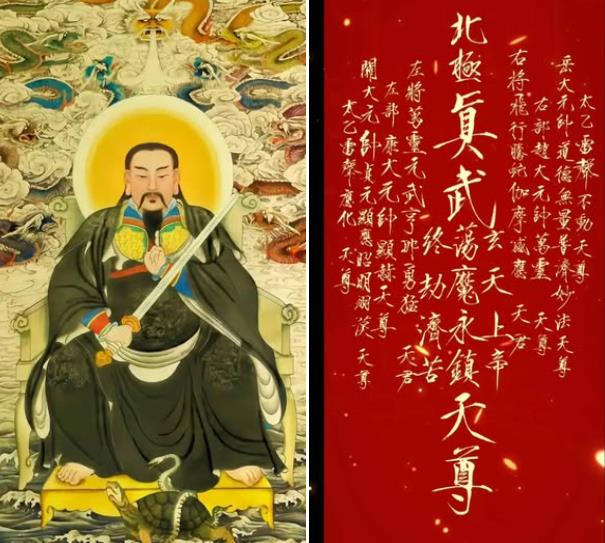 太乙雷聲不動天尊
岳大元帥道德無量普濟妙法天尊
右部趙大元帥萬靈 天尊
右将飛行騰蛇伽摩威應 天君
玄天上帝
北極眞武蕩魔永鎮天尊
終劫濟苦
左將萬靈元武亨耶勇猛 天君
左部康大元帥顯赫天尊
關大元帥真元顯應昭明翊漢天尊
太乙雷聲應化 天尊